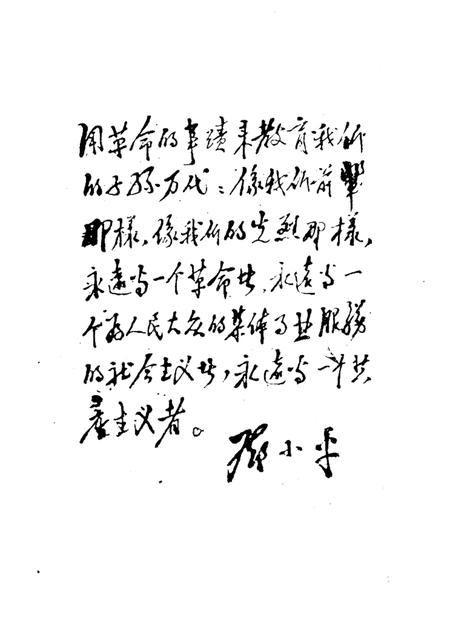 用革命的事蹟来教育我们
的子孙万代：像我们前辈
那样，像我们的先烈那样，
永远当一个革命者，永远当一
个为人民大众的集体事业服务
的社会主义者，永远当一个共
产主义者。
邓小平